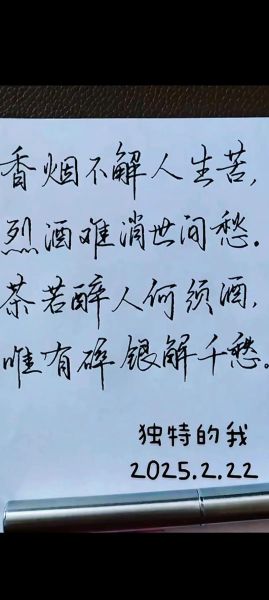 香烟不解人生苦，
烈酒难消世间愁。
茶若醉人何须酒，
唯有碎银解千愁。
独特的我
2025.2.22